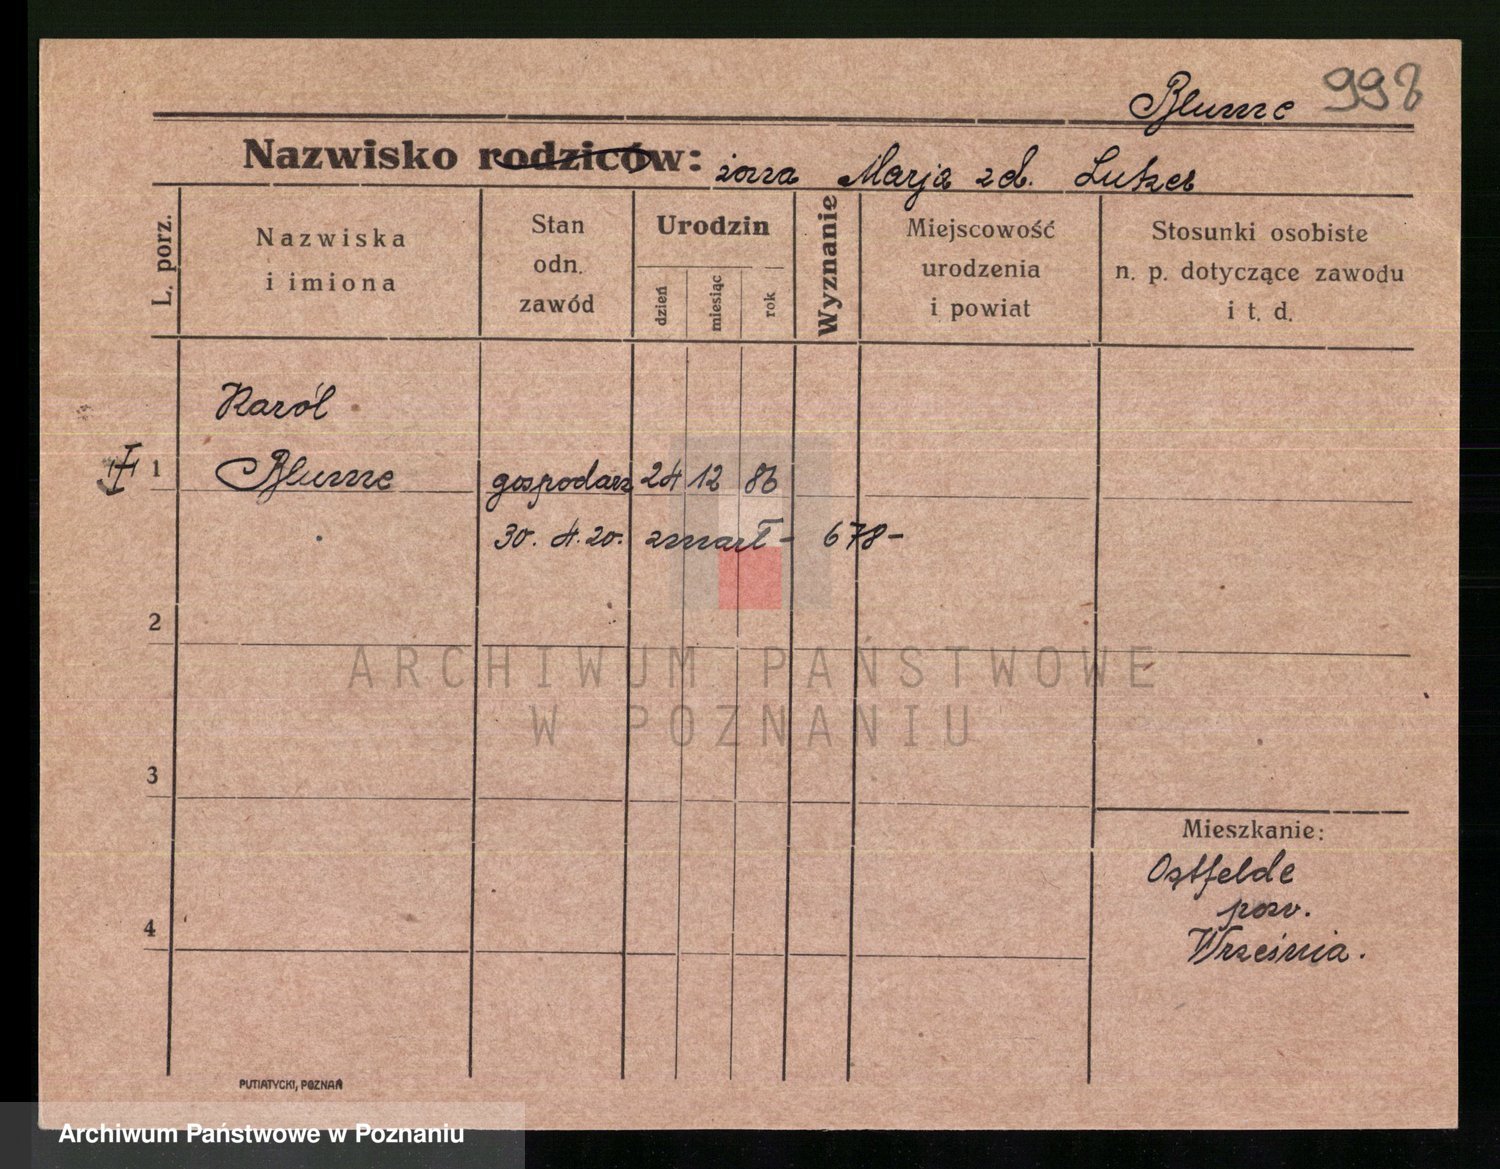 Blume 998
Nazwisko rodziców: żona Marja zd. Lutzer
L. porz.
Nazwiska
i imiona
Stan
odn.
zawód
Urodzin
dzień
miesiąc
rok
Wyznanie
Miejscowość
urodzenia
i powiat
Stosunki osobiste
n. p. dotyczące zawodu
i t. d.
Karól
1 Blume gospodarz 24 12 86
30. 4. 20. zmarł – 678 –
2
ARCHIWUM PAŃSTWOWE
W POZNANIU
3
Mieszkanie:
Ostfelde
pow.
Września.
4
PUTIATYCKI, POZNAŃ
Archiwum Państwowe w Poznaniu